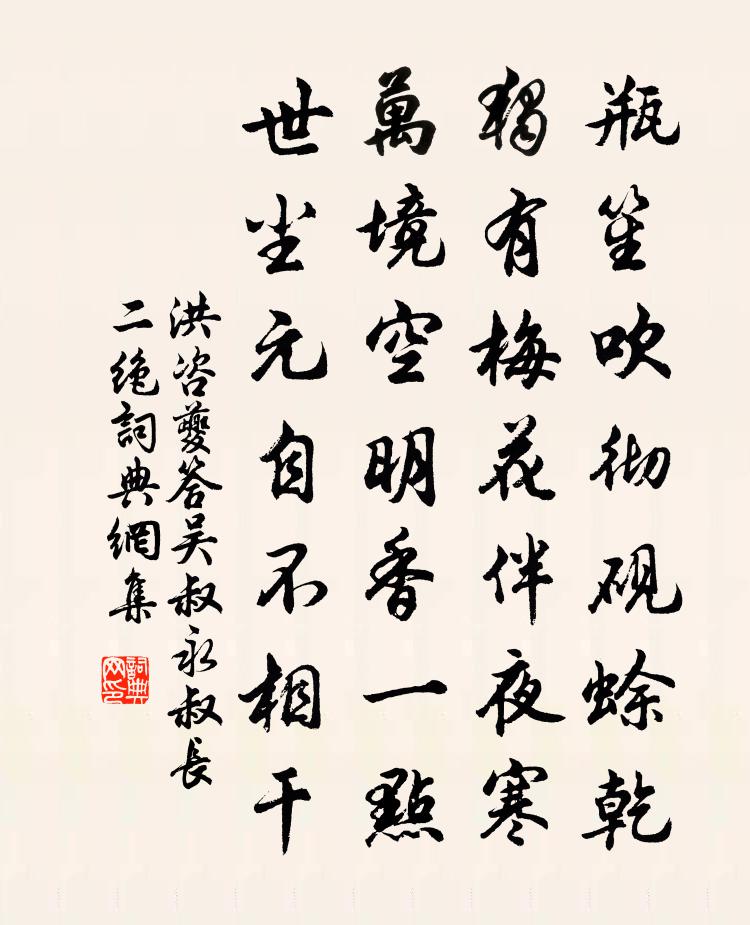 瓶笙吹彻砚蜍乾
独有梅花伴夜寒
萬境空明香一點
世尘元自不相干
洪咨夔答吴叔永叔長
二绝詞典網集
詞典网印